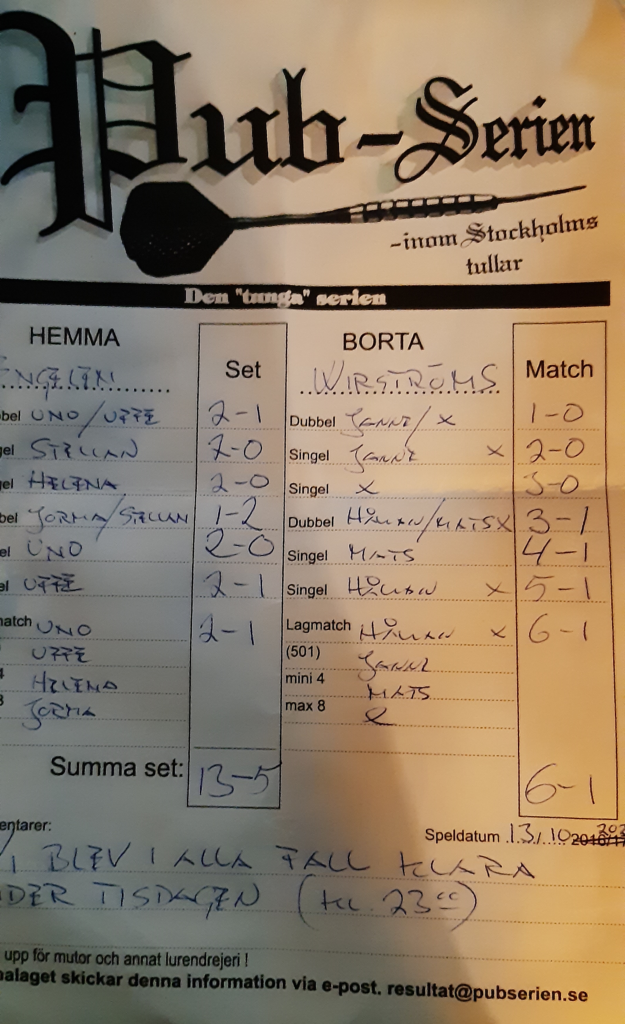 Pub-Serien
-inom Stockholms
tullar
Den "tunga" serien
HEMMA Set BORTA Match
NGELEN WIRSTRÖMS
bel UNO/UFFE 2-1 Dubbel JANNE/X 1-0
gel STELLAN 2-0 Singel JANNE X 2-0
gel HELENA 2-0 Singel X 3-0
bel JORMA/STELLAN 1-2 Dubbel HÅKAN/MATS X 3-1
el UNO 2-0 Singel MATS 4-1
el UFFE 2-1 Singel HÅKAN X 5-1
match UNO 2-1 Lagmatch HÅKAN X 6-1
UFFE (501) JANNE
4 HELENA mini 4 MATS
8 JORMA max 8
Summa set: 13-5 6-1
entarer: Speldatum 13/10
VI BLEV I ALLA FALL KLARA
NDER TISDAGEN (kl. 23 00)
upp för mutor och annat lurendrejeri !
nalaget skickar denna information via e-post. resultat@pubserien.se